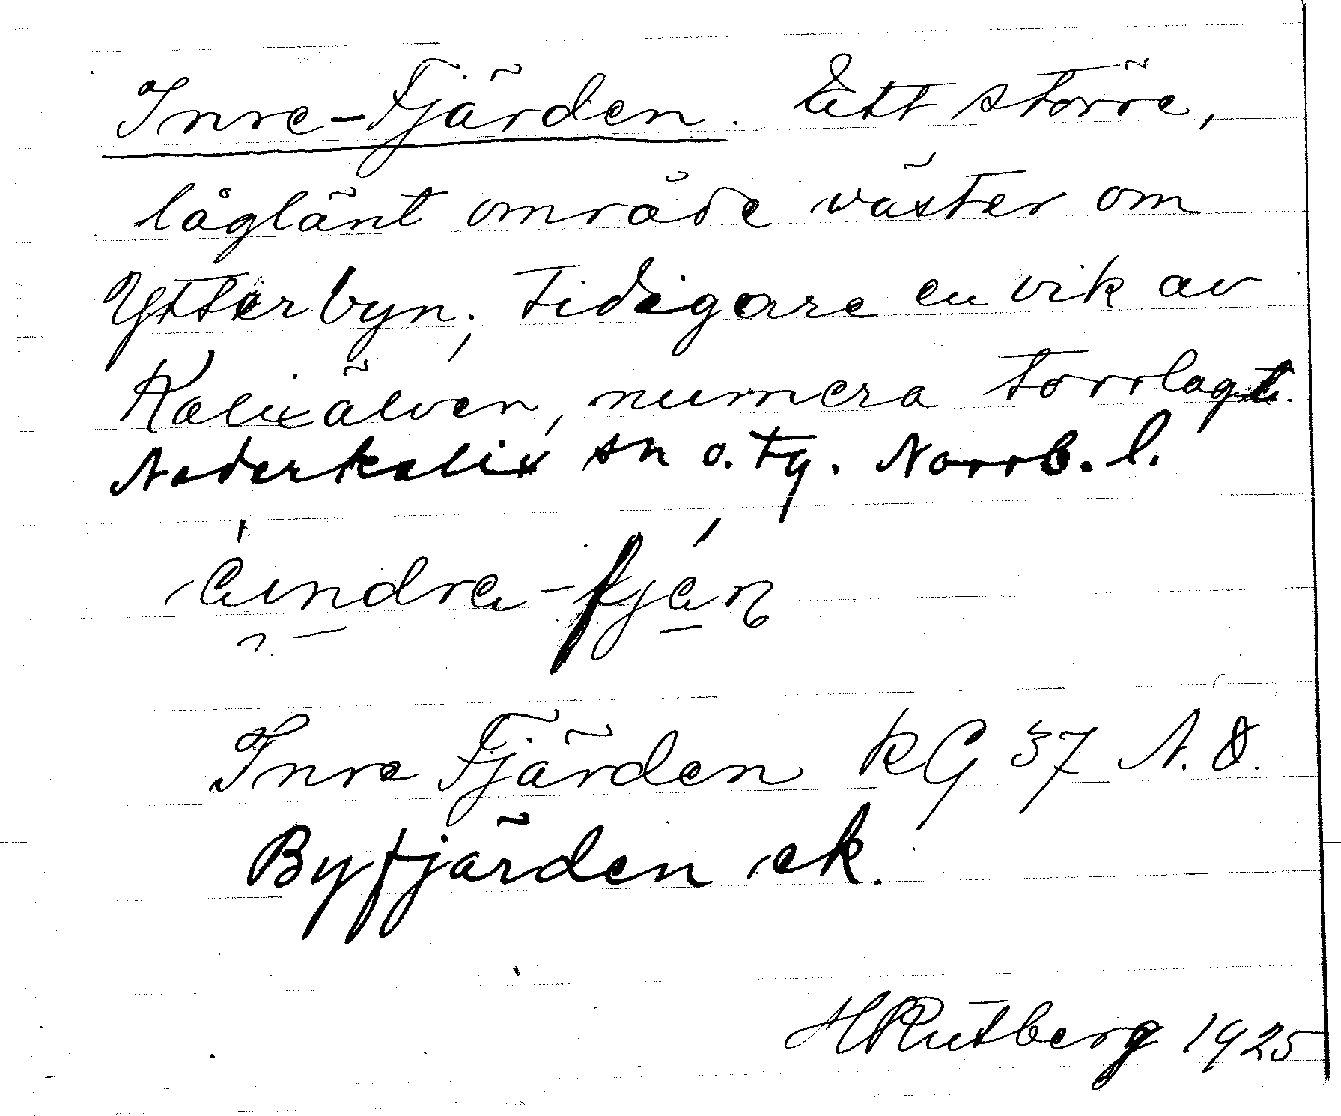 Inre-Fjärden. Ett större,
låglänt område väster om
Ytterbyn; tidigare en vik av
Kalixälven, numera torrlagt.
Nederkalix sn o. tg. Norrb. l.
Inre Fjärden KG 37 N.O.
Byfjärden ek.
H Rutberg 1925